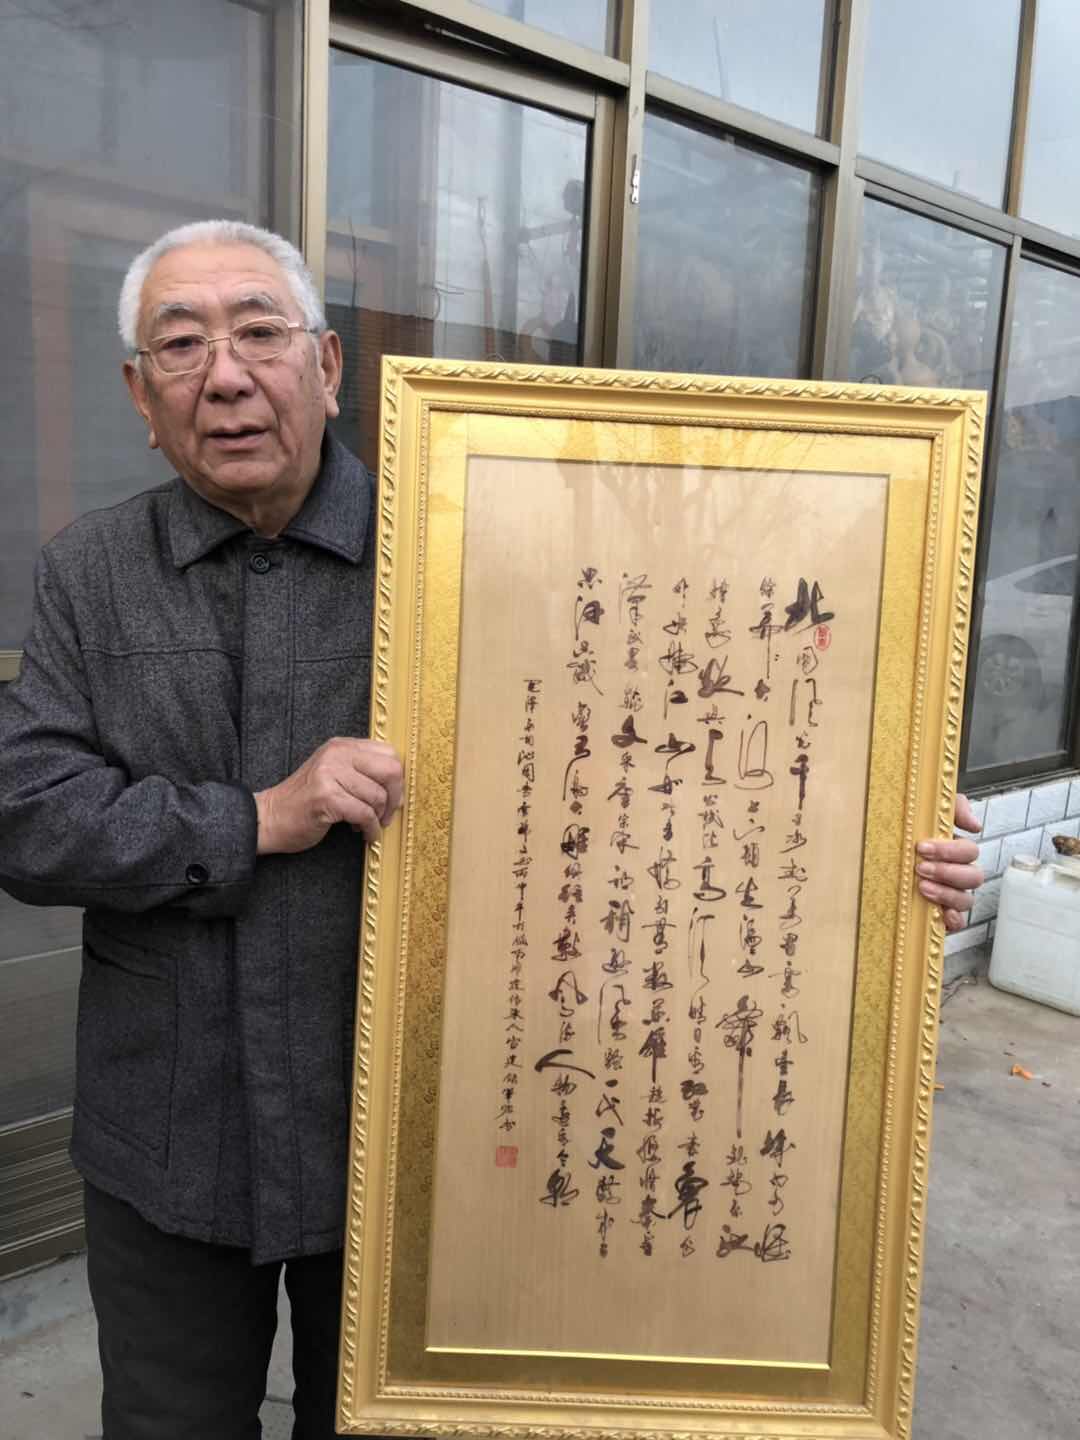 北国风光千里冰封万里雪飘望长城内外惟
馀莽莽大河上下顿失滔滔山舞银蛇原驰
蜡象欲与天公试比高须晴日看红装素裹分
外妖娆江山如此多娇引无数英雄竞折腰惜秦皇
汉武略输文采唐宗宋祖稍逊风骚一代天骄成吉
思汗只识弯弓射大雕俱往矣数风流人物还看今朝
毛泽东词沁园春雪 丙申年 传承人 建 书